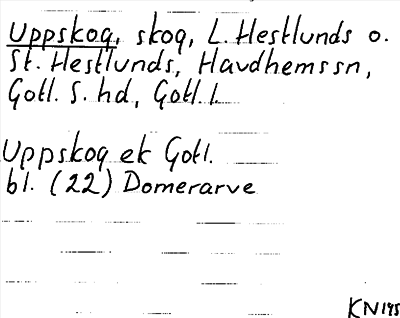 Uppskog, skog, L. Hestlunds o.
St. Hestlunds, Havdhems sn,
Gotl. S. hd, Gotl. l.
Uppskog ek Gotl.
bl. (22) Domerarve